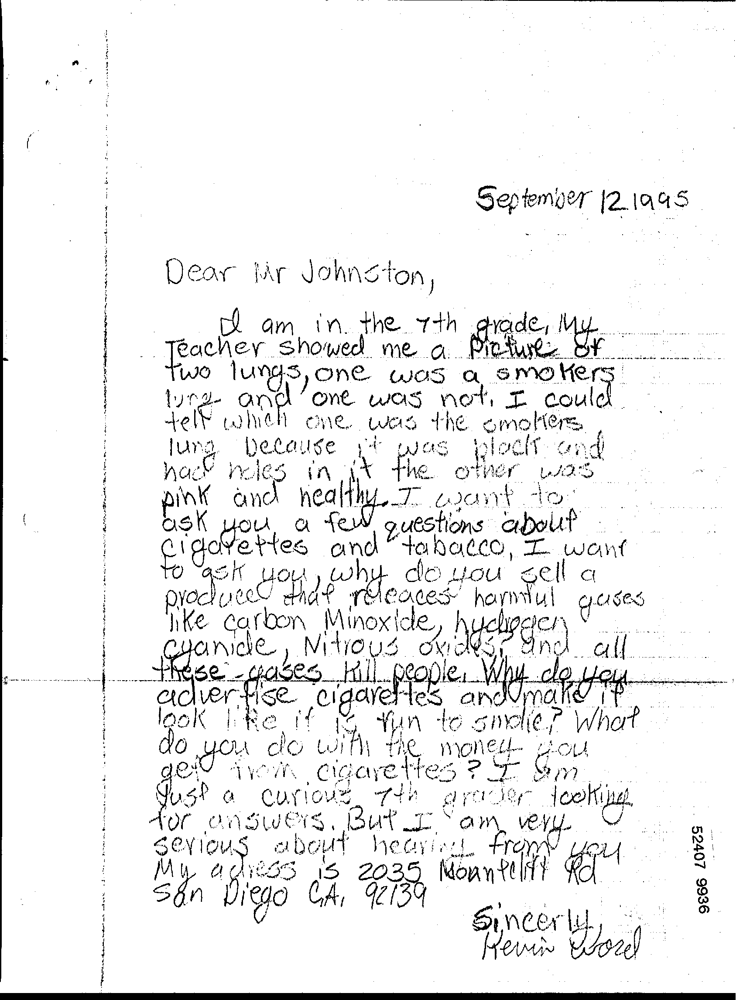 September 12 1995
Dear Mr Johnston,
I am in the 7th grade, My
Teacher showed me a Picture of
two lungs, one was a smokers
lung and one was not, I could
tell which one was the smokers
lung because it was black and
had holes in it the other was
pink and healthy. I want to
ask you a few questions about
cigarettes and tabacco, I want
to ask you, why do you sell a
produce that releaces harmful gases
like carbon Minoxide, hydrogen
cyanide, Nitrous oxides, and all
these gases kill people, Why do you
advertise cigarettes and make it
look like it is fun to smoke? What
do you do with the money you
get from cigarettes? I am
Just a curious 7th grader looking
for answers. But I am very
serious about hearing from you
My adress is 2035 Rd
San Diego CA, 92139
Sincerly,
Kevin Word
52407 9936